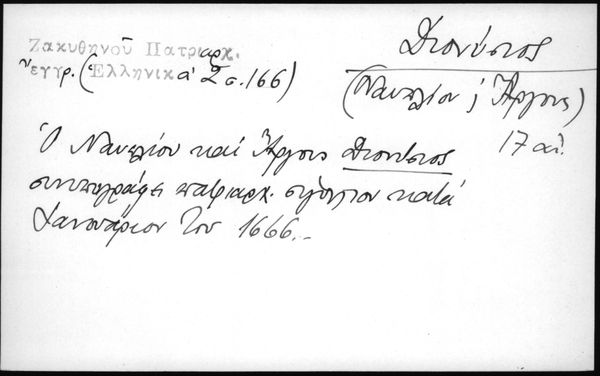 Ζακυθηνοῦ Πατριαρχ.
ἔγγρ. (Ἑλληνικὰ 2 σ. 166)
Διονύσιος
(Ναυπλίου ἢ Ἄργους)
17 αἰ.
Ὁ Ναυπλίου καὶ Ἄργους Διονύσιος
συνυπογράφει πατριαρχ. σιγίλλιον κατὰ
Ἰανουάριον τοῦ 1666.-